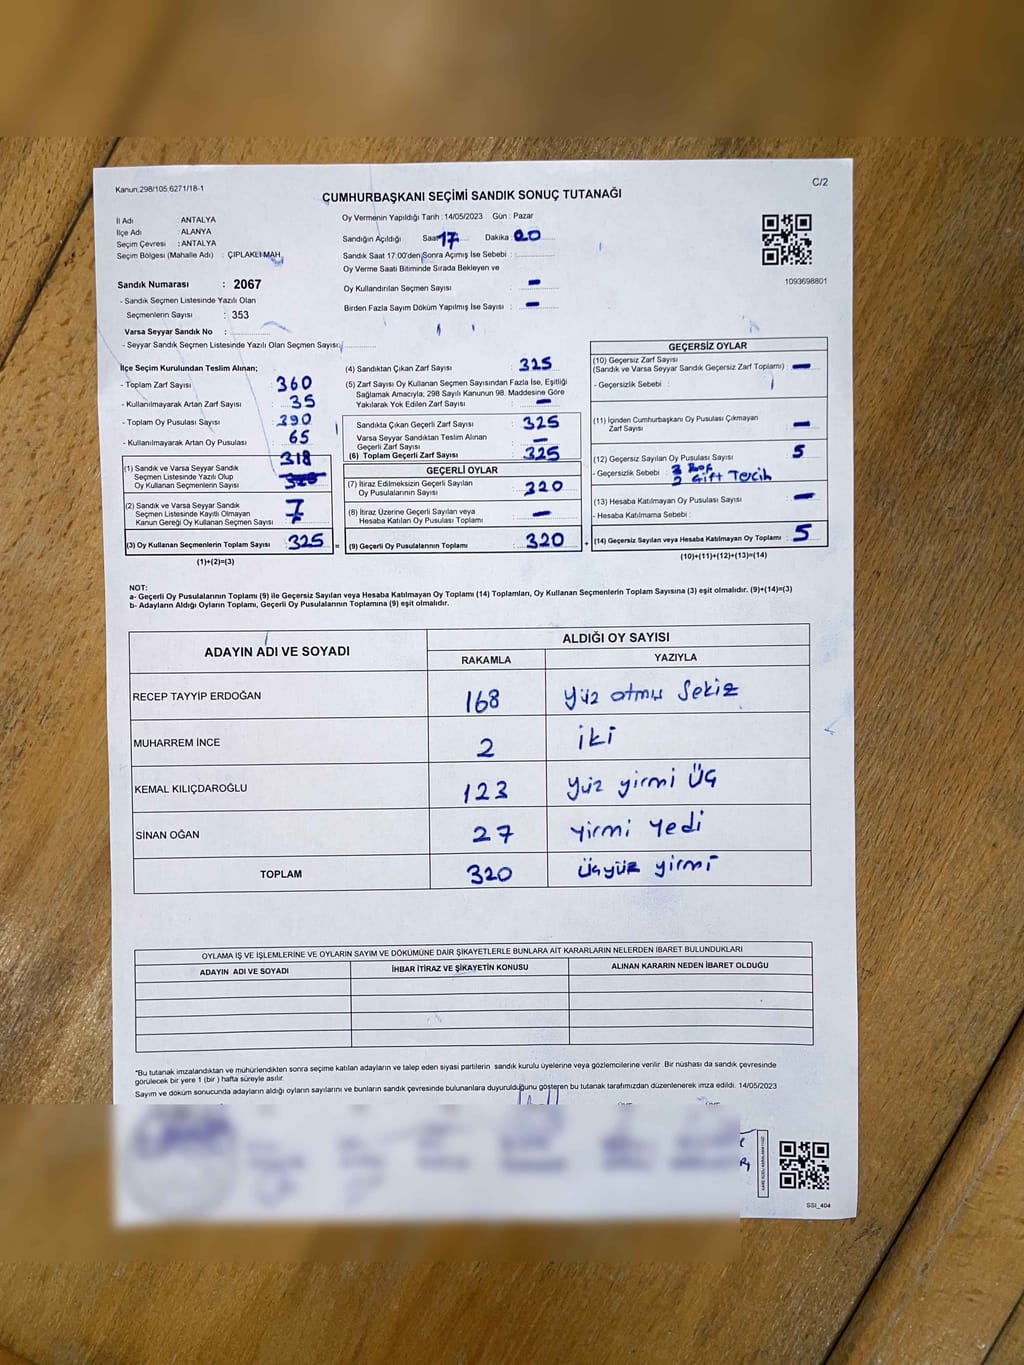 Kanun:298/105,6271/18-1
C/2
CUMHURBAŞKANI SEÇİMİ SANDIK SONUÇ TUTANAĞI
İl Adı : ANTALYA
İlçe Adı : ALANYA
Seçim Çevresi : ANTALYA
Seçim Bölgesi (Mahalle Adı) : ÇIPLAKLI MAH.
Sandık Numarası : 2067
- Sandık Seçmen Listesinde Yazılı Olan
Seçmenlerin Sayısı : 353
Varsa Seyyar Sandık No :
- Seyyar Sandık Seçmen Listesinde Yazılı Olan Seçmen Sayısı:
Oy Vermenin Yapıldığı Tarih : 14/05/2023 Gün : Pazar
Sandığın Açıldığı Saat 17 Dakika 00
Sandık Saat 17:00'den Sonra Açımış İse Sebebi :
Oy Verme Saati Bitiminde Sırada Bekleyen ve
Oy Kullandırılan Seçmen Sayısı : -
Birden Fazla Sayım Döküm Yapılmış İse Sayısı : -
1093698801
İlçe Seçim Kurulundan Teslim Alınan;
- Toplam Zarf Sayısı : 360
- Kullanılmayarak Artan Zarf Sayısı : 35
- Toplam Oy Pusulası Sayısı : 390
- Kullanılmayarak Artan Oy Pusulası : 65
318
(1) Sandık ve Varsa Seyyar Sandık
Seçmen Listesinde Yazılı Olup
Oy Kullanan Seçmenlerin Sayısı :
(2) Sandık ve Varsa Seyyar Sandık
Seçmen Listesinde Kayıtlı Olmayan
Kanun Gereği Oy Kullanan Seçmen Sayısı : 7
(3) Oy Kullanan Seçmenlerin Toplam Sayısı : 325 =
(1)+(2)=(3)
(4) Sandıktan Çıkan Zarf Sayısı : 325
(5) Zarf Sayısı Oy Kullanan Seçmen Sayısından Fazla İse, Eşitliği
Sağlamak Amacıyla, 298 Sayılı Kanunun 98. Maddesine Göre
Yakılarak Yok Edilen Zarf Sayısı : -
Sandıkta Çıkan Geçerli Zarf Sayısı : 325
Varsa Seyyar Sandıktan Teslim Alınan
Geçerli Zarf Sayısı : -
(6) Toplam Geçerli Zarf Sayısı : 325
GEÇERLİ OYLAR
(7) İtiraz Edilmeksizin Geçerli Sayılan
Oy Pusulalarının Sayısı : 320
(8) İtiraz Üzerine Geçerli Sayılan veya
Hesaba Katılan Oy Pusulası Toplamı : -
(9) Geçerli Oy Pusulalarının Toplamı : 320 +
GEÇERSİZ OYLAR
(10) Geçersiz Zarf Sayısı
(Sandık ve Varsa Seyyar Sandık Geçersiz Zarf Toplamı) : -
- Geçersizlik Sebebi :
(11) İçinden Cumhurbaşkanı Oy Pusulası Çıkmayan
Zarf Sayısı : -
(12) Geçersiz Sayılan Oy Pusulası Sayısı : 5
- Geçersizlik Sebebi : 3 Boş
2 Çift Tercih
(13) Hesaba Katılmayan Oy Pusulası Sayısı : -
- Hesaba Katılmama Sebebi :
(14) Geçersiz Sayılan veya Hesaba Katılmayan Oy Toplamı : 5
(10)+(11)+(12)+(13)=(14)
NOT:
a- Geçerli Oy Pusulalarının Toplamı (9) ile Geçersiz Sayılan veya Hesaba Katılmayan Oy Toplamı (14) Toplamları, Oy Kullanan Seçmenlerin Toplam Sayısına (3) eşit olmalıdır. (9)+(14)=(3)
b- Adayların Aldığı Oyların Toplamı, Geçerli Oy Pusulalarının Toplamına (9) eşit olmalıdır.
ADAYIN ADI VE SOYADI
ALDIĞI OY SAYISI
RAKAMLA YAZIYLA
RECEP TAYYİP ERDOĞAN 168 yüz atmış sekiz
MUHARREM İNCE 2 iki
KEMAL KILIÇDAROĞLU 123 yüz yirmi üç
SİNAN OĞAN 27 yirmi yedi
TOPLAM 320 üçyüz yirmi
OYLAMA İŞ VE İŞLEMLERİNE VE OYLARIN SAYIM VE DÖKÜMÜNE DAİR ŞİKAYETLERLE BUNLARA AİT KARARLARIN NELERDEN İBARET BULUNDUKLARI
ADAYIN ADI VE SOYADI İHBAR İTİRAZ VE ŞİKAYETİN KONUSU ALINAN KARARIN NEDEN İBARET OLDUĞU
*Bu tutanak imzalandıktan ve mühürlendikten sonra seçime katılan adayların ve talep eden siyasi partilerin sandık kurulu üyelerine veya gözlemcilerine verilir. Bir nüshası da sandık çevresinde
görülecek bir yere 1 (bir ) hafta süreyle asılır.
Sayım ve döküm sonucunda adayların aldığı oyların sayılarını ve bunların sandık çevresinde bulunanlara duyurulduğunu gösteren bu tutanak tarafımızdan düzenlenerek imza edildi. 14/05/2023
SSI_404